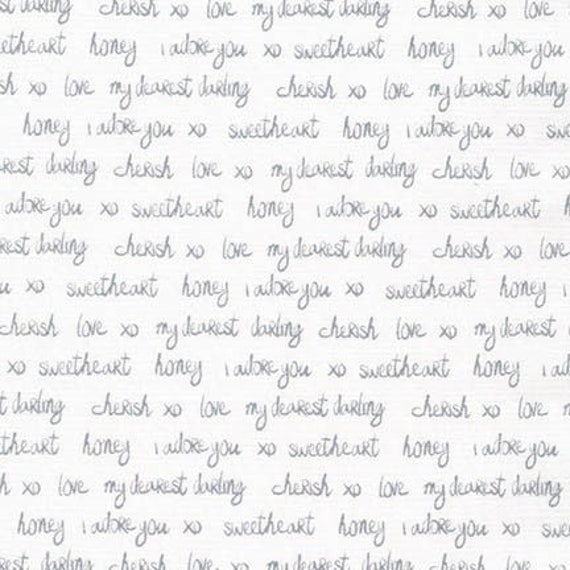 st darling cherish xo love my dearest darling cherish xo love
etheart honey i adore you xo sweetheart honey i adore you
sh xo love my dearest darling cherish xo love my dearest darling
honey i adore you xo sweetheart honey i adore you xo sw
rest darling cherish love xo my dearest darling cherish love xo
adore you xo sweetheart honey i adore you xo sweetheart h
rest darling cherish xo love my dearest darling cherish xo love
u xo sweetheart honey i adore you xo sweetheart honey i
cherish love xo my dearest darling cherish love xo my dearest
xo sweetheart honey i adore you xo sweetheart honey i ad
t darling cherish xo love my dearest darling cherish xo love m
theart honey i adore you xo sweetheart honey i adore you
h xo love my dearest darling cherish xo love my dearest darling
honey i adore you xo sweetheart honey i adore you xo swe
rest darling cherish love xo my dearest darling cherish love xo